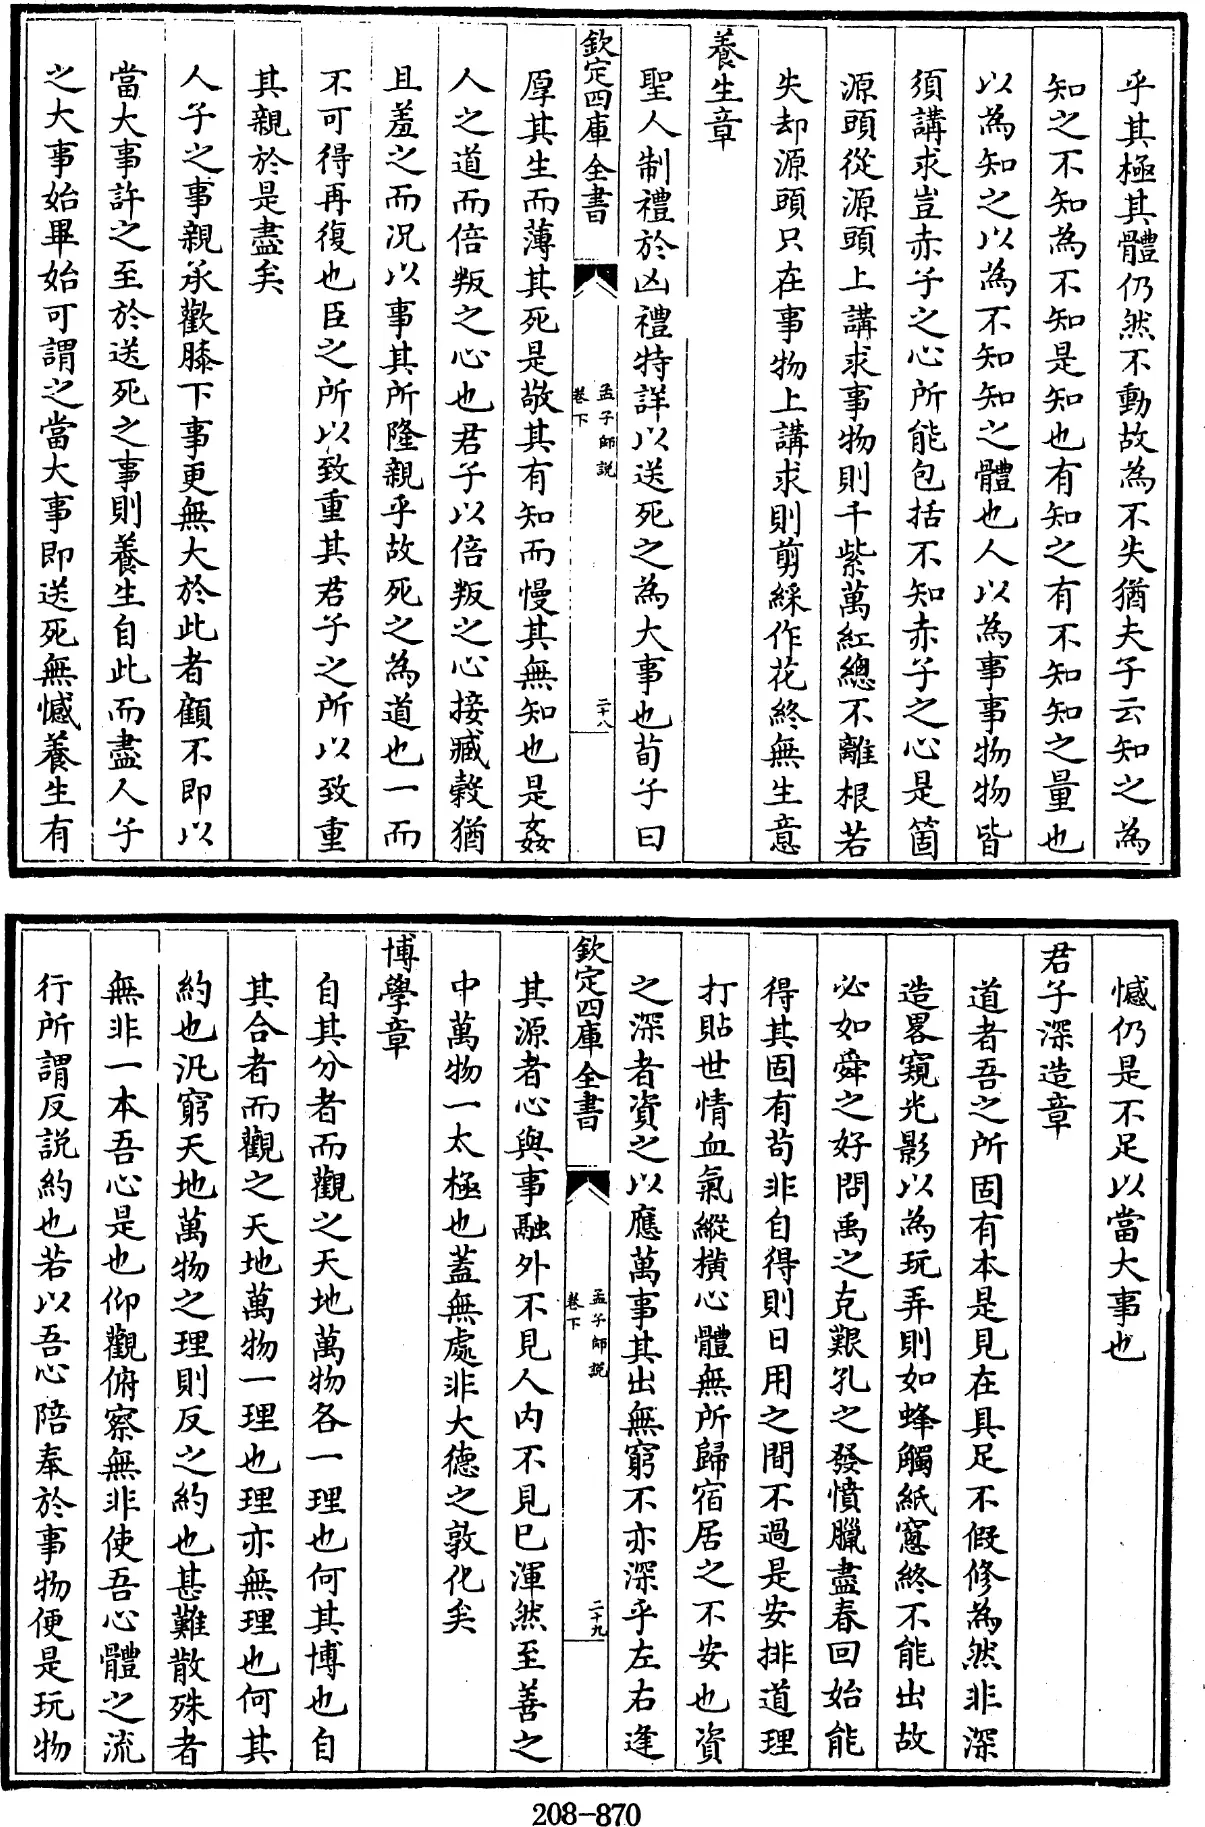 乎其極其體仍然不動故為不失猶夫子云知之為
知之不知為不知是知也有知之有不知知之量也
以為知之以為不知知之體也人以為事事物物皆
須講求豈赤子之心所能包括不知赤子之心是箇
源頭從源頭上講求事物則千紫萬紅總不離根若
失却源頭只在事物上講求則剪綵作花終無生意
養生章
聖人制禮於凶禮特詳以送死之為大事也荀子曰
欽定四庫全書
孟子師說
卷下
二十八
厚其生而薄其死是敬其有知而慢其無知也是姦
人之道而倍叛之心也君子以倍叛之心接臧穀猶
且羞之而况以事其所隆親乎故死之為道也一而
不可得再復也臣之所以致重其君子之所以致重
其親於是盡矣
人子之事親承歡膝下事更無大於此者顧不即以
當大事許之至於送死之事則養生自此而盡人子
之大事始畢始可謂之當大事即送死無憾養生有
憾仍是不足以當大事也
君子深造章
道者吾之所固有本是見在具足不假修為然非深
造畧窺光影以為玩弄則如蜂觸紙窓終不能出故
必如舜之好問禹之克艱孔之發憤臘盡春回始能
得其固有苟非自得則日用之間不過是安排道理
打貼世情血氣縱橫心體無所歸宿居之不安也資
之深者資之以應萬事其出無窮不亦深乎左右逢
欽定四庫全書
孟子師說
卷下
二十九
其源者心與事融外不見人内不見已渾然至善之
中萬物一太極也蓋無處非大德之敦化矣
博學章
自其分者而觀之天地萬物各一理也何其博也自
其合者而觀之天地萬物一理也理亦無理也何其
約也汎窮天地萬物之理則反之約也甚難散殊者
無非一本吾心是也仰觀俯察無非使吾心體之流
行所謂反説約也若以吾心陪奉於事物便是玩物
208-870